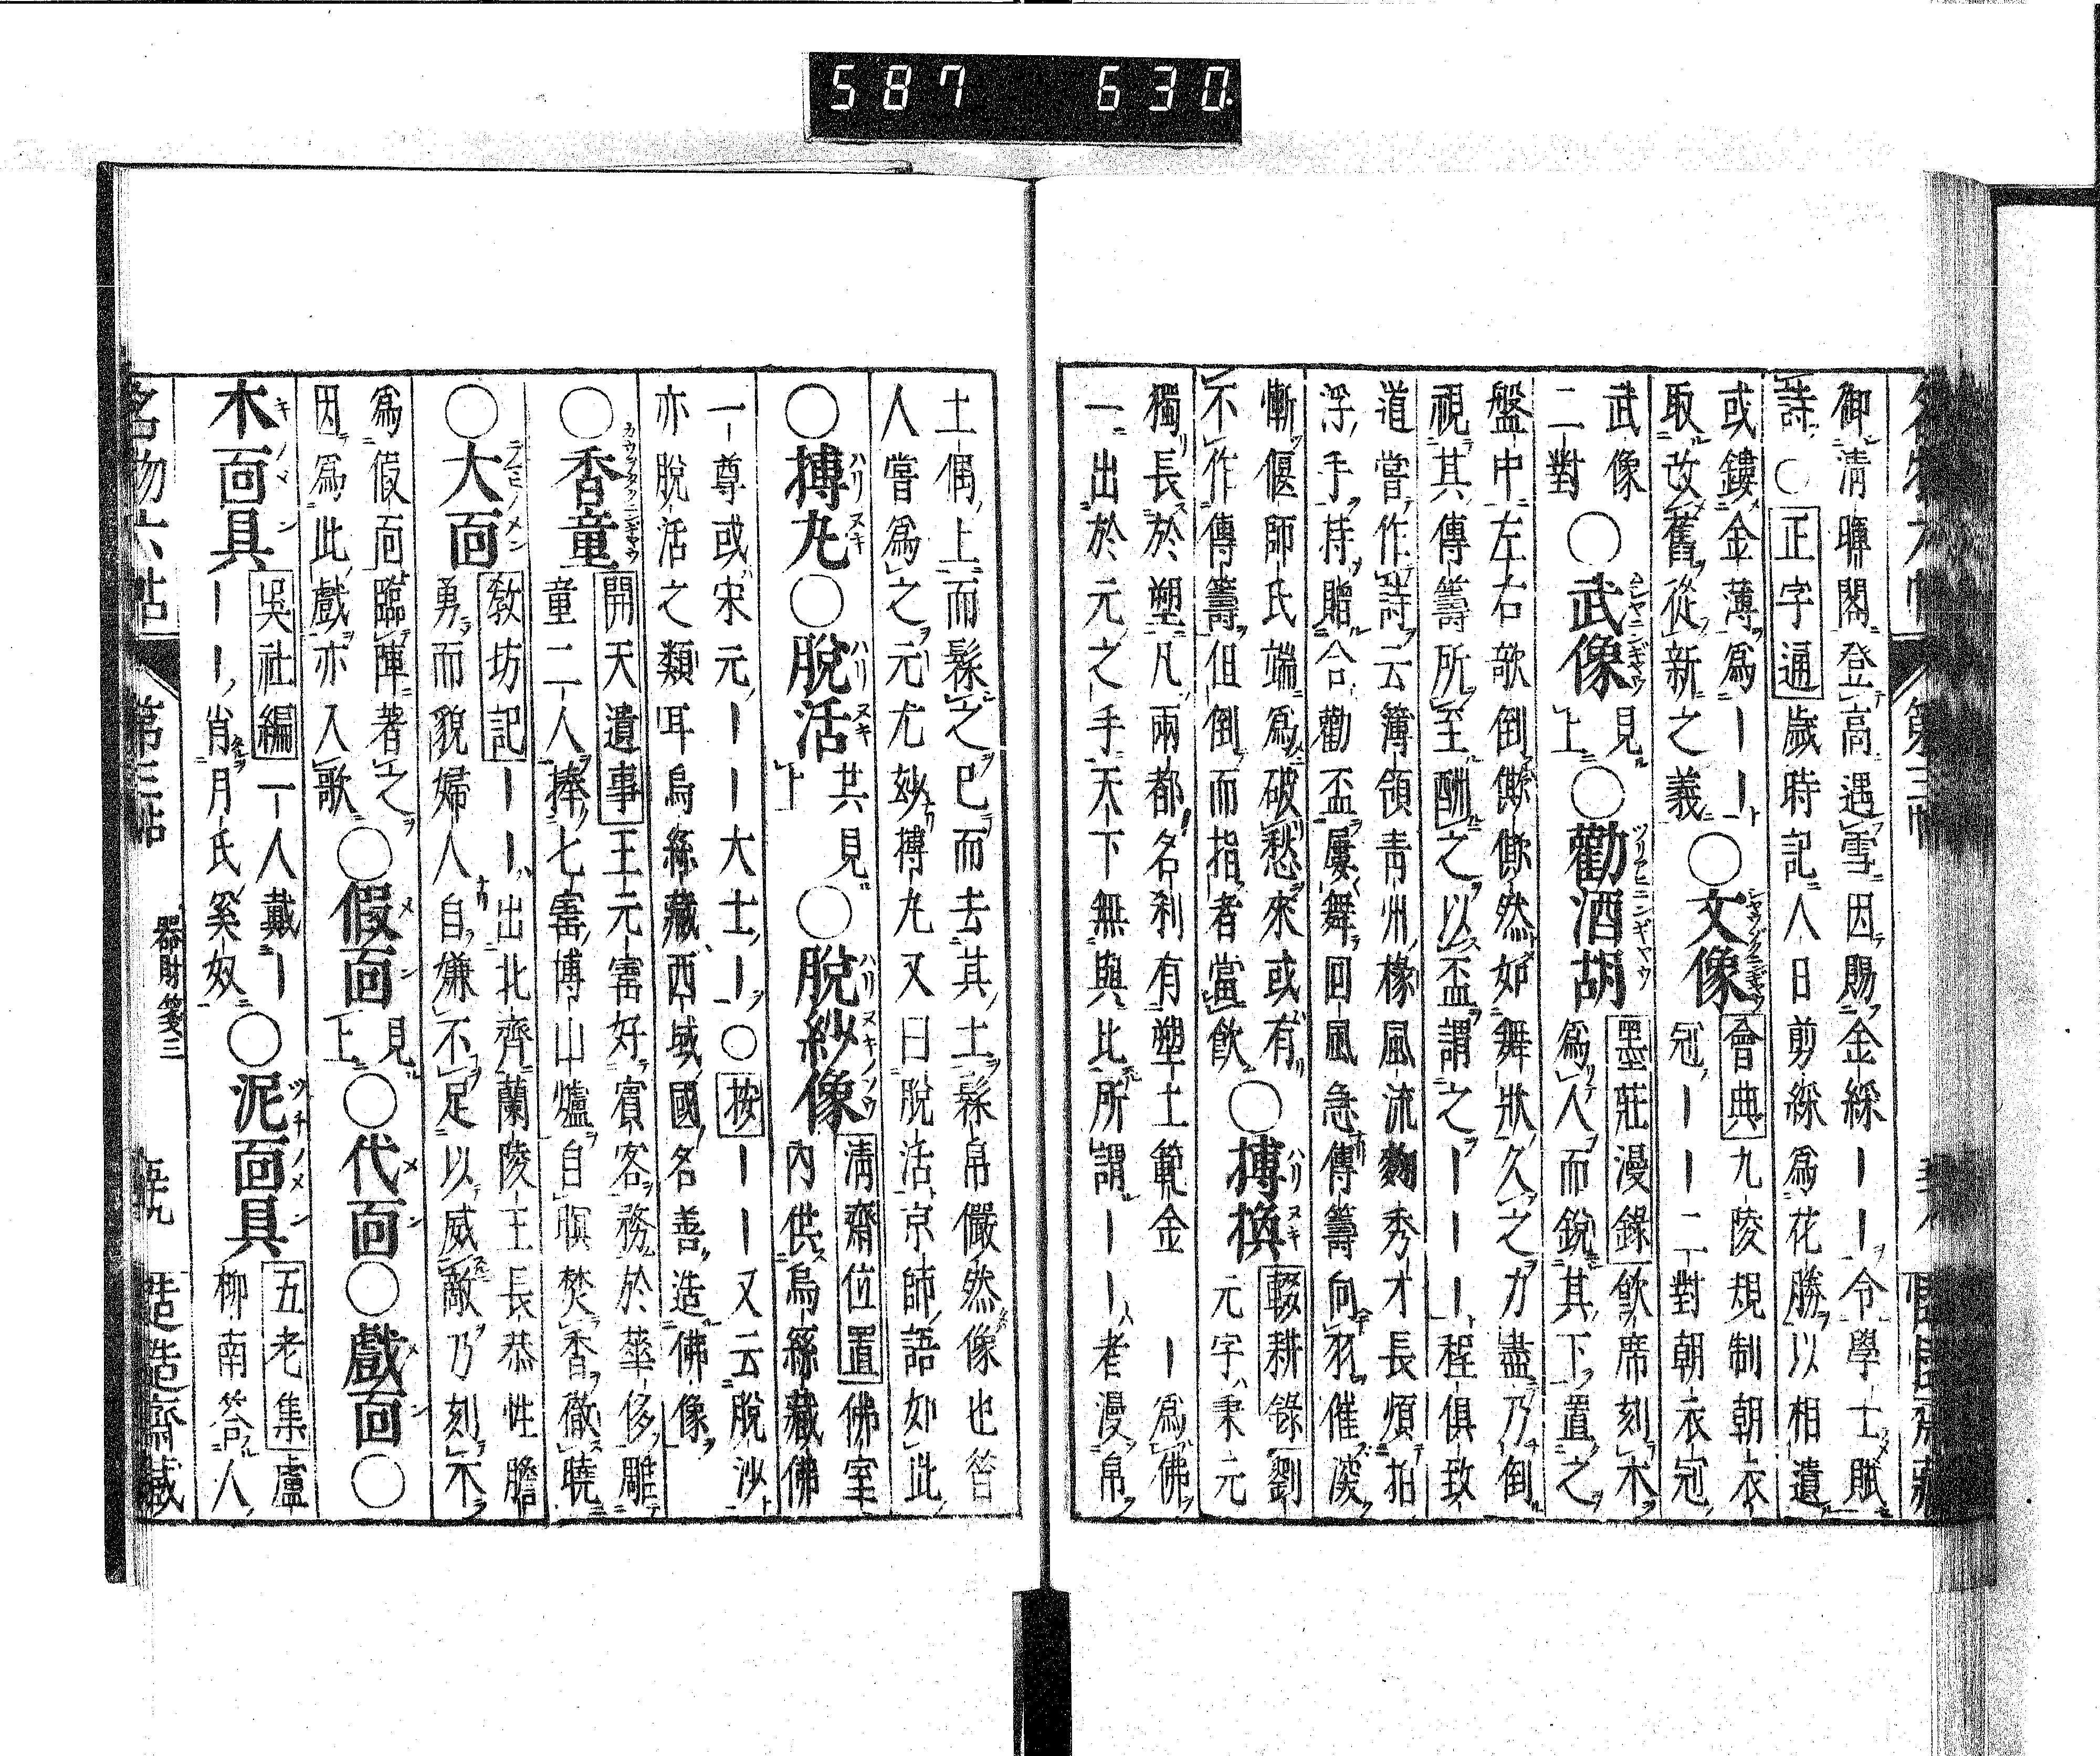 御清䏈閣登高遇雪因賜金綵｜｜令學士賦
詩○正字通歲時記人日剪綵爲花勝以相遺
或鏤金薄爲｜｜
取改舊從新之義
○文像
會典九陵規制朝衣
冠｜｜二對朝衣冠
武像
二對
○武像
見
上
○勸酒胡
墨莊漫錄飮席刻木
爲人而銳其下置之
盤中左右欹倒僛僛然如舞狀久之力盡乃倒
視其傳籌所至酬之以盃謂之｜｜｜程俱致
道嘗作詩云簿領靑州掾風流麴秀才長煩拍
浮手持贈合勸盃屢舞回風急傳籌向羽催深
慚偃師氏端爲破愁來或有
不作傳籌但倒而指者當飮
○摶換
輟耕錄劉
元字秉元
獨長於塑凡兩都名刹有塑土範金｜爲佛
一出於元之手天下無與比所謂｜｜者漫帛
土偶上而髹之已而去其土髹帛儼然像也昔
人嘗爲之元尤玅摶丸又曰脫活京師語如此
○摶丸○脫活
共見
上
○脫紗像
淸齋位置佛室
內供烏絲藏佛
一尊或宋元｜｜大士｜○按｜｜又云脫沙
亦脫活之類耳烏絲藏西域國名善造佛像
○香童
開天遺事王元寶好賓客務於華侈雕
童二人捧七寶博山爐自暝焚香徹曉
○大面
敎坊記｜｜出北齊蘭陵王長恭性膽
勇而貌婦人自嫌不足以威敵乃刻木
爲假面臨陣著之
因爲此戲亦入歌
○假面
見
上
○代面○戲面○
木面具
吳社編一人戴｜
｜｜肖月氏奚奴
○泥面具
五老集盧
柳南答人
名物六帖 第三帖 器財箋三
587 630